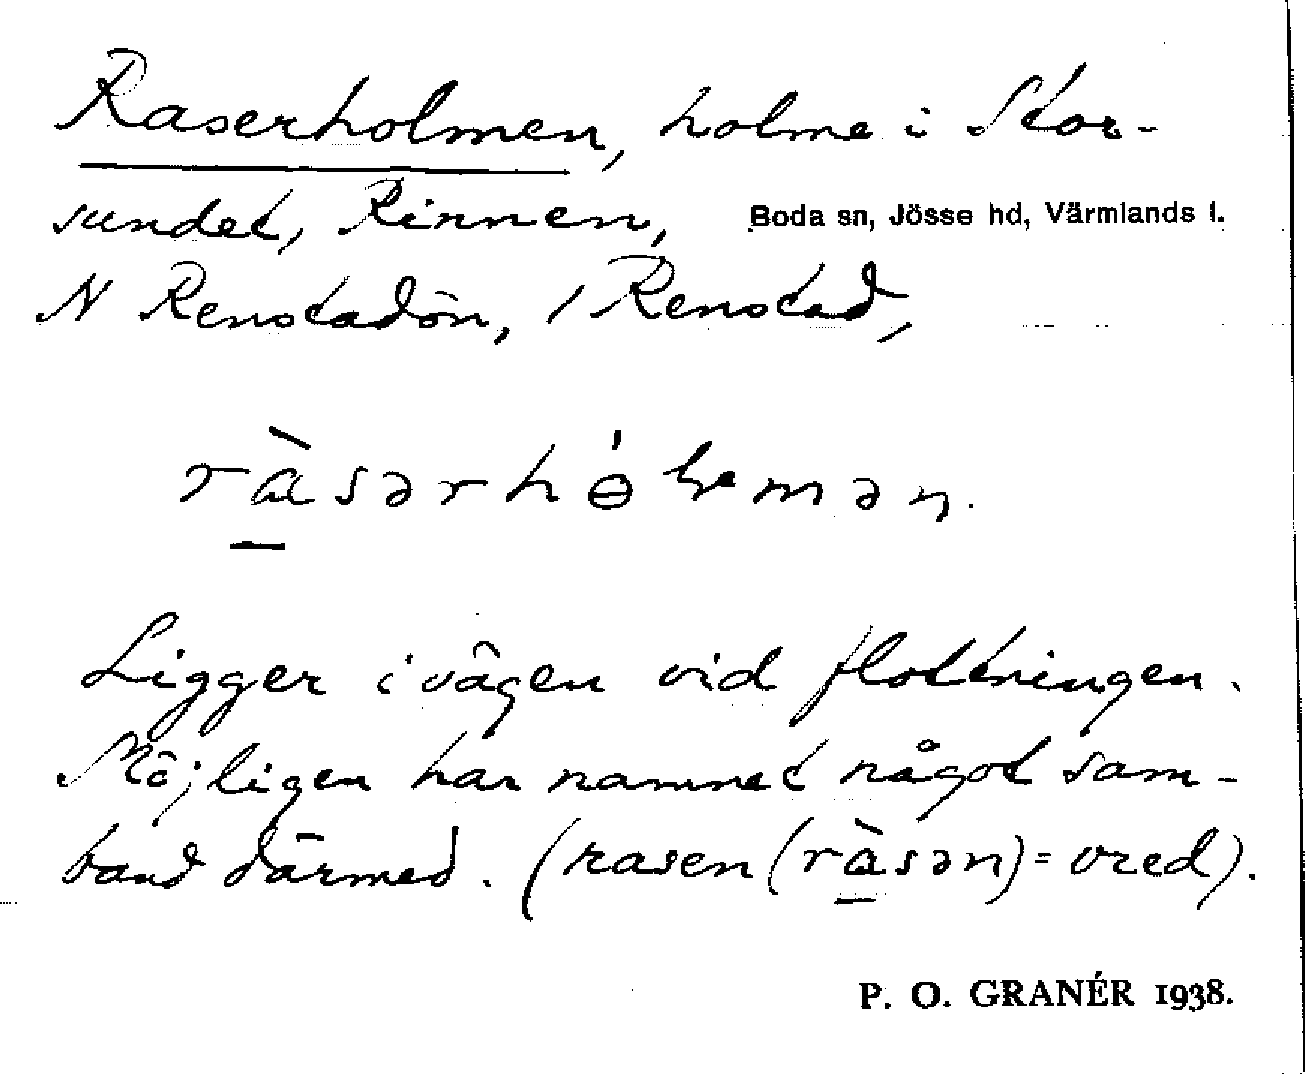 Raserholmen, holme i Stor-
sundet, Rinnen,
Boda sn, Jösse hd, Värmlands l.
N Renstadön, / Renstad,
ràsərhɵ́lmən.
Ligger i vägen vid flottningen.
Möjligen har namnet något sam-
band därmed. (rasen (ràsən) = vred).
P. O. GRANÉR 1938.